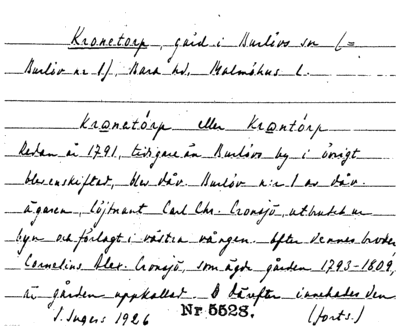 Kronetorp, gård i Burlövs sn (=
Burlöv nr 1), Bara hd, Malmöhus l.
Kronetorp eller Krontorp
Redan år 1791, tidigare än Burlövs by i övrigt
blev enskiftad, blev dåv. Burlöv n:r 1 av dåv.
ägaren, löjtnant Carl Chr. Cronsjö, utbruten ur
byn och förlagt i västra vången. Efter dennes broder
Cornelius Alex. Cronsjö, som ägde gården 1793-1809,
är gården uppkallad. Därefter innehades den
S. Ingers 1926 Nr 5528. (forts.)